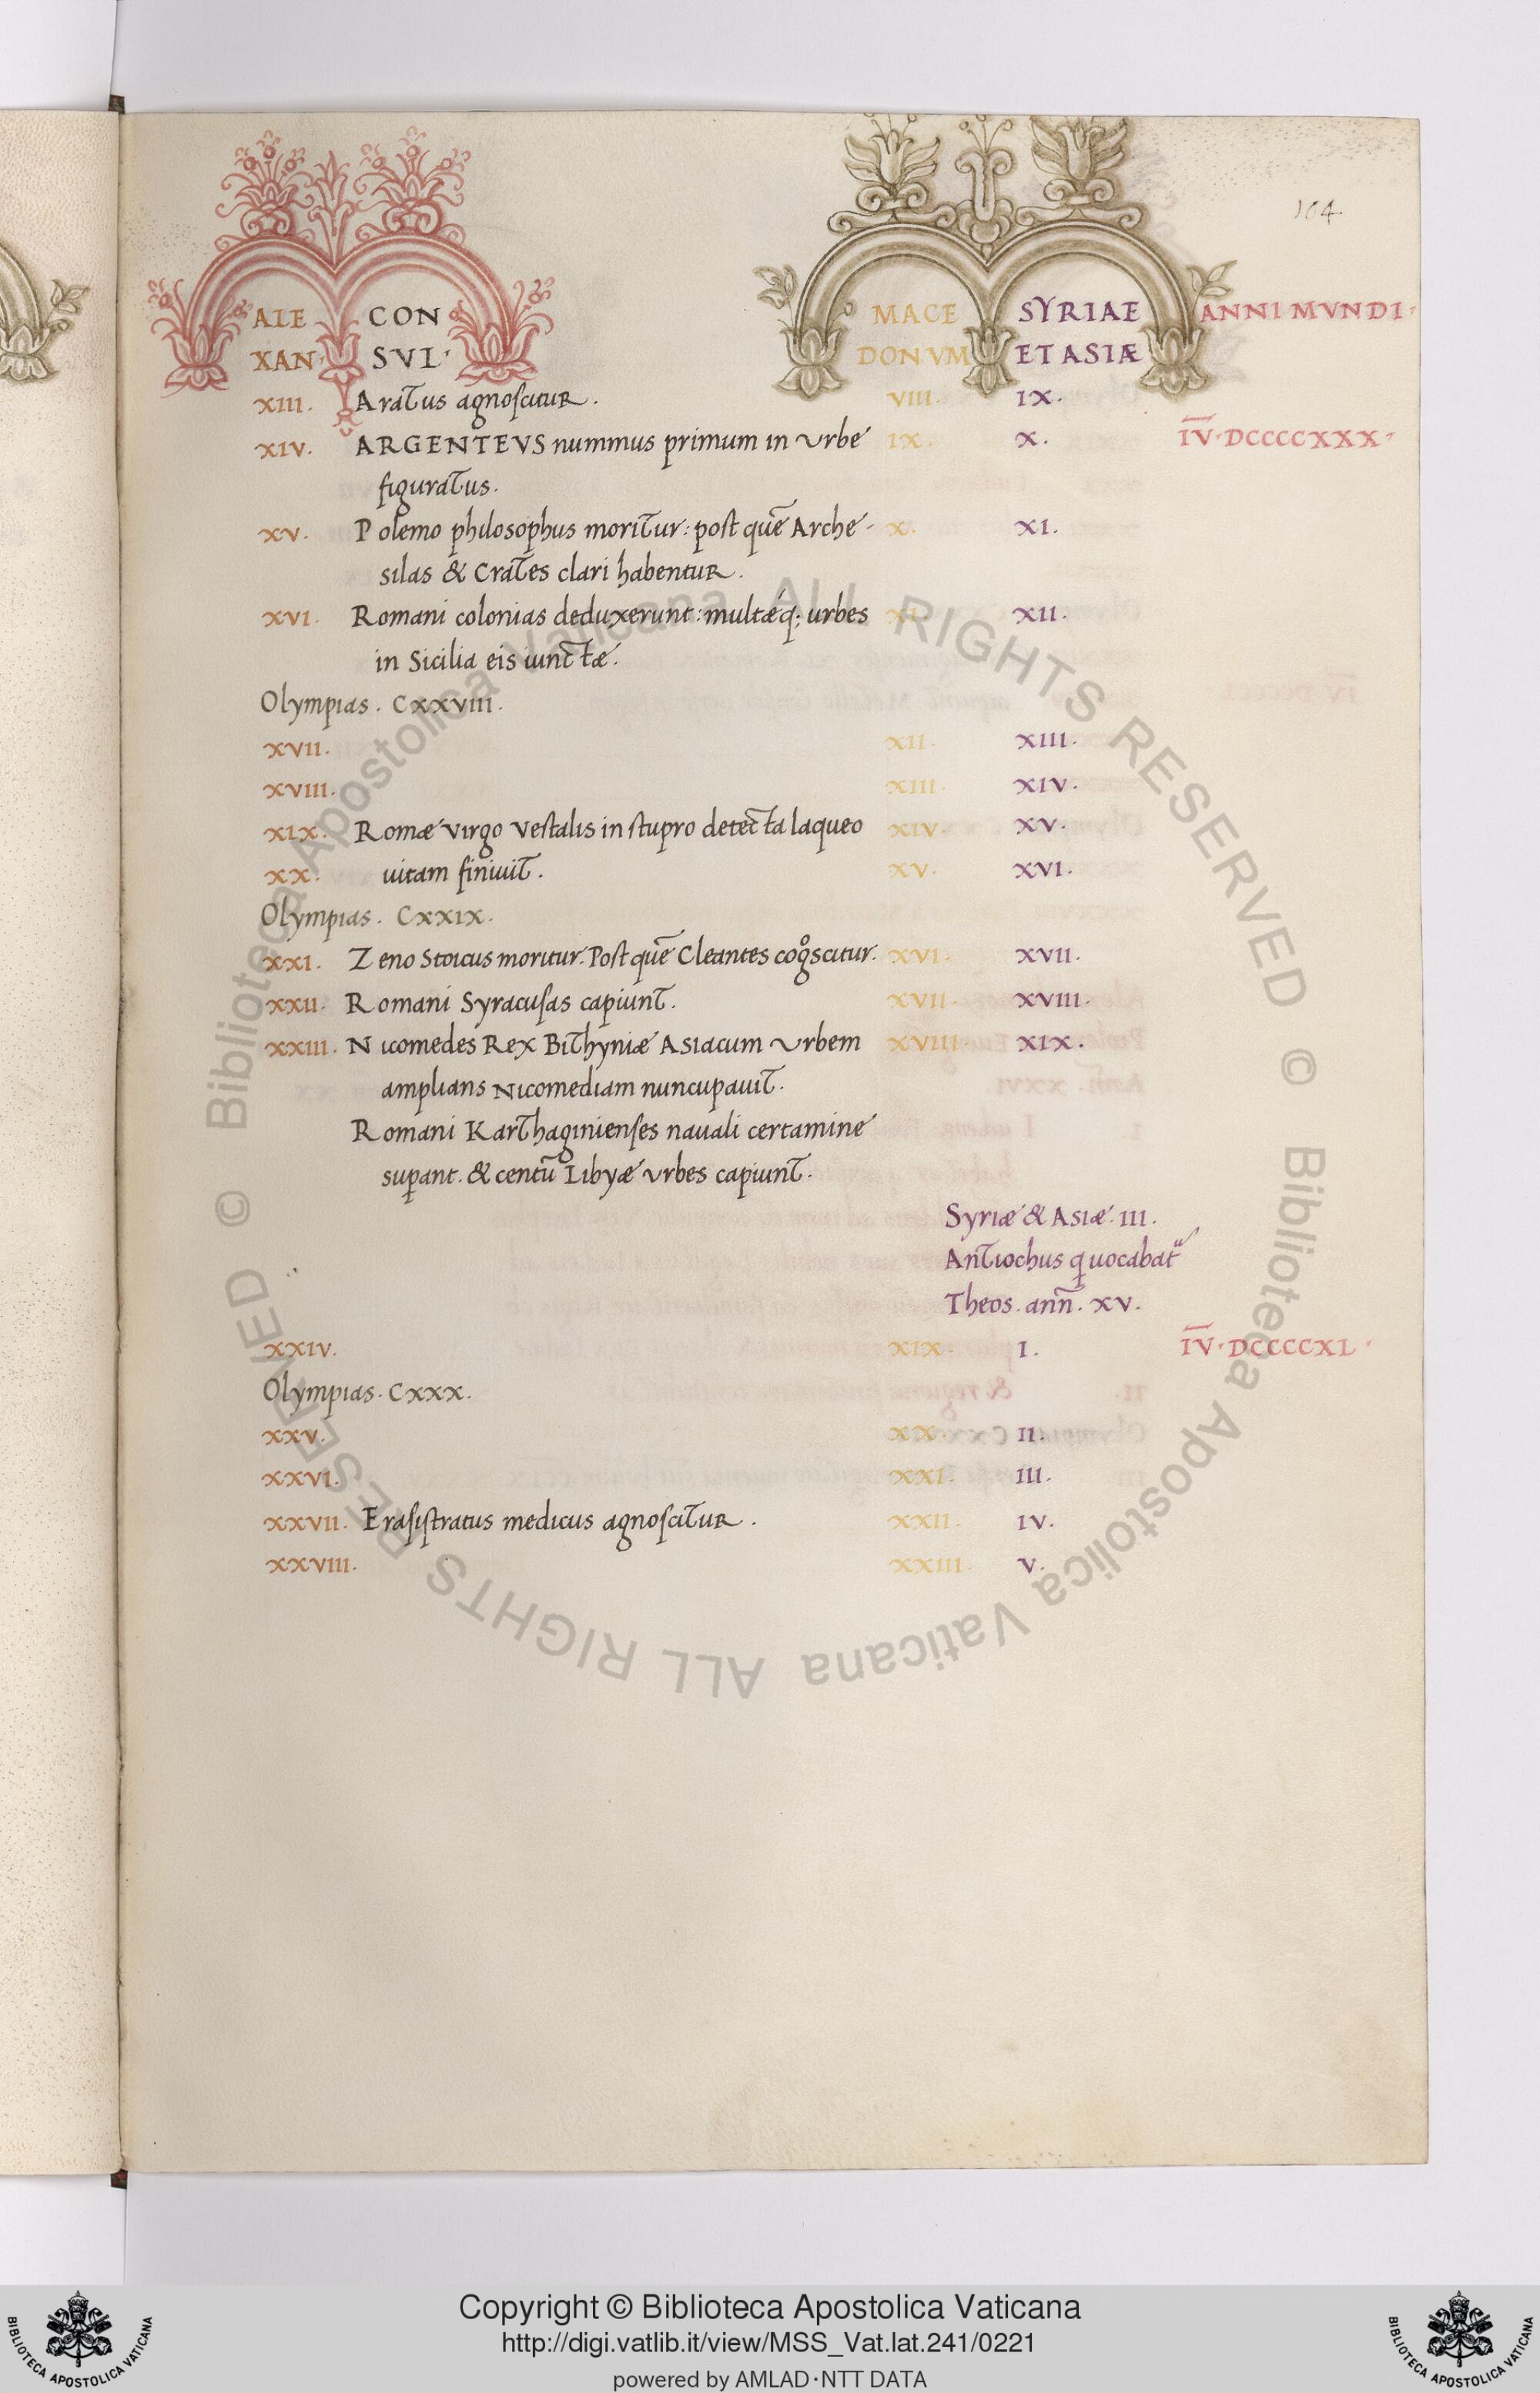 104.
ALE XAN· CON SVL· MACE DONVM SYRIAE ET ASIÆ ANNI MVNDI·
XIII. Aratus agnoscitur. VIII. IX.
XIV. ARGENTEVS nummus primum in Vrbe IX. X. I̅V̅·DCCCCXXX·
figuratus.
XV. Polemo philosophus moritur: post quē Arche- X. XI.
silas & Crates clari habentur.
XVI. Romani colonias deduxerunt: multæq; urbes XI. XII.
in Sicilia eis iunctæ.
Olympias. CXXVIII.
XVII. XII. XIII.
XVIII. XIII. XIV.
XIX. Romæ virgo Vestalis in stupro detecta laqueo XIV. XV.
XX. uitam finiuit. XV. XVI.
Olympias. CXXIX.
XXI. Zeno Stoicus moritur. Post quē Cleantes cogͦscitur. XVI. XVII.
XXII. Romani Syracusas capiunt. XVII. XVIII.
XXIII. Nicomedes Rex Bithyniæ Asiacum Vrbem XVIII. XIX.
amplians Nicomediam nuncupauit.
Romani Karthaginienses nauali certamine
suꝑant. & centū Libyæ Vrbes capiunt.
Syriæ & Asiæ. III.
Antiochus q uocabat᷑
Theos. ann̄. XV.
XXIV. XIX. I. I̅V̅·DCCCCXL·
Olympias. CXXX.
XXV. XX. II.
XXVI. XXI. III.
XXVII. Erasistratus medicus agnoscitur. XXII. IV.
XXVIII. XXIII. V.
© Biblioteca Apostolica Vaticana ALL RIGHTS RESERVED
© Biblioteca Apostolica Vaticana ALL RIGHTS RESERVED
Copyright © Biblioteca Apostolica Vaticana
http://digi.vatlib.it/view/MSS_Vat.lat.241/0221
powered by AMLAD·NTT DATA
BIBLIOTECA APOSTOLICA VATICANA
BIBLIOTECA APOSTOLICA VATICANA